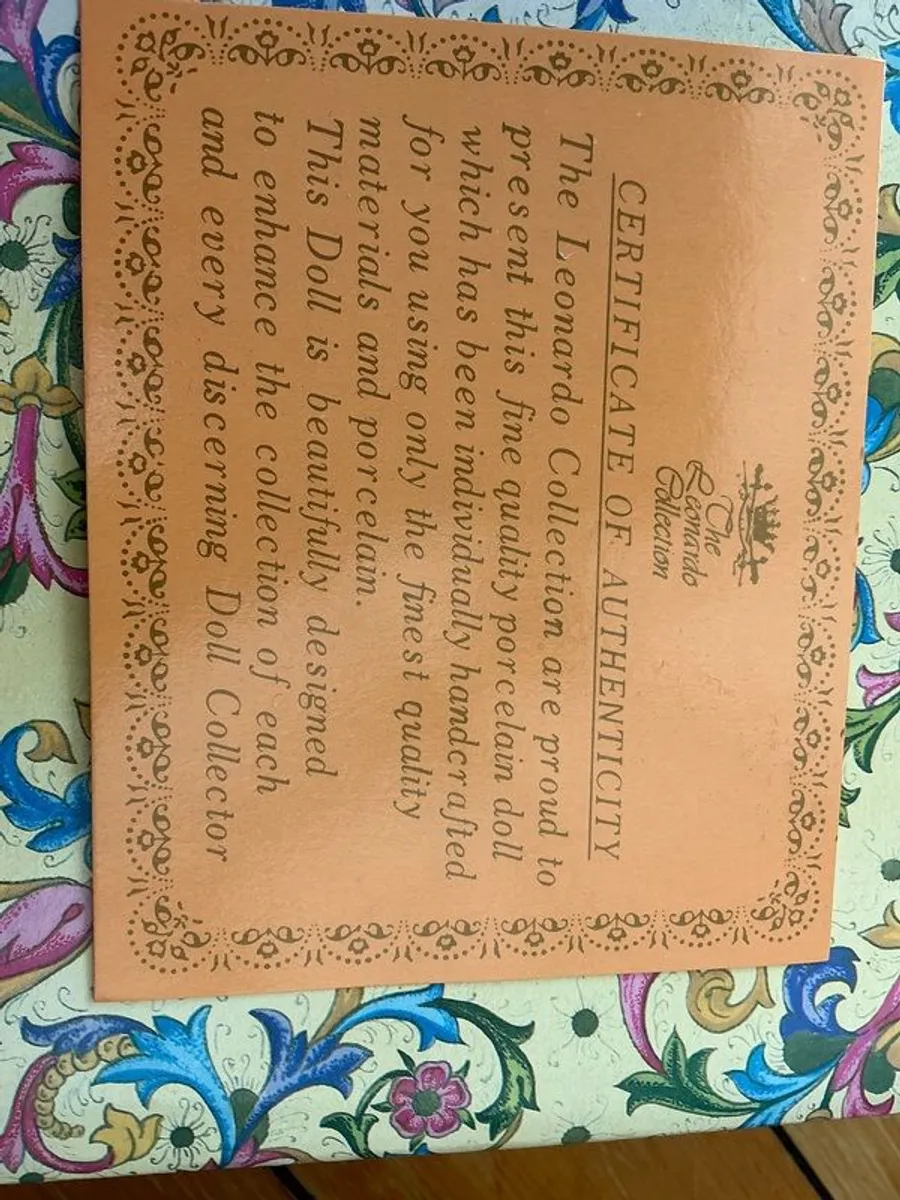 The
Leonardo
Collection
CERTIFICATE OF AUTHENTICITY
The Leonardo Collection are proud to
present this fine quality porcelain doll
which has been individually handcrafted
for you using only the finest quality
materials and porcelain.
This Doll is beautifully designed
to enhance the collection of each
and every discerning Doll Collector